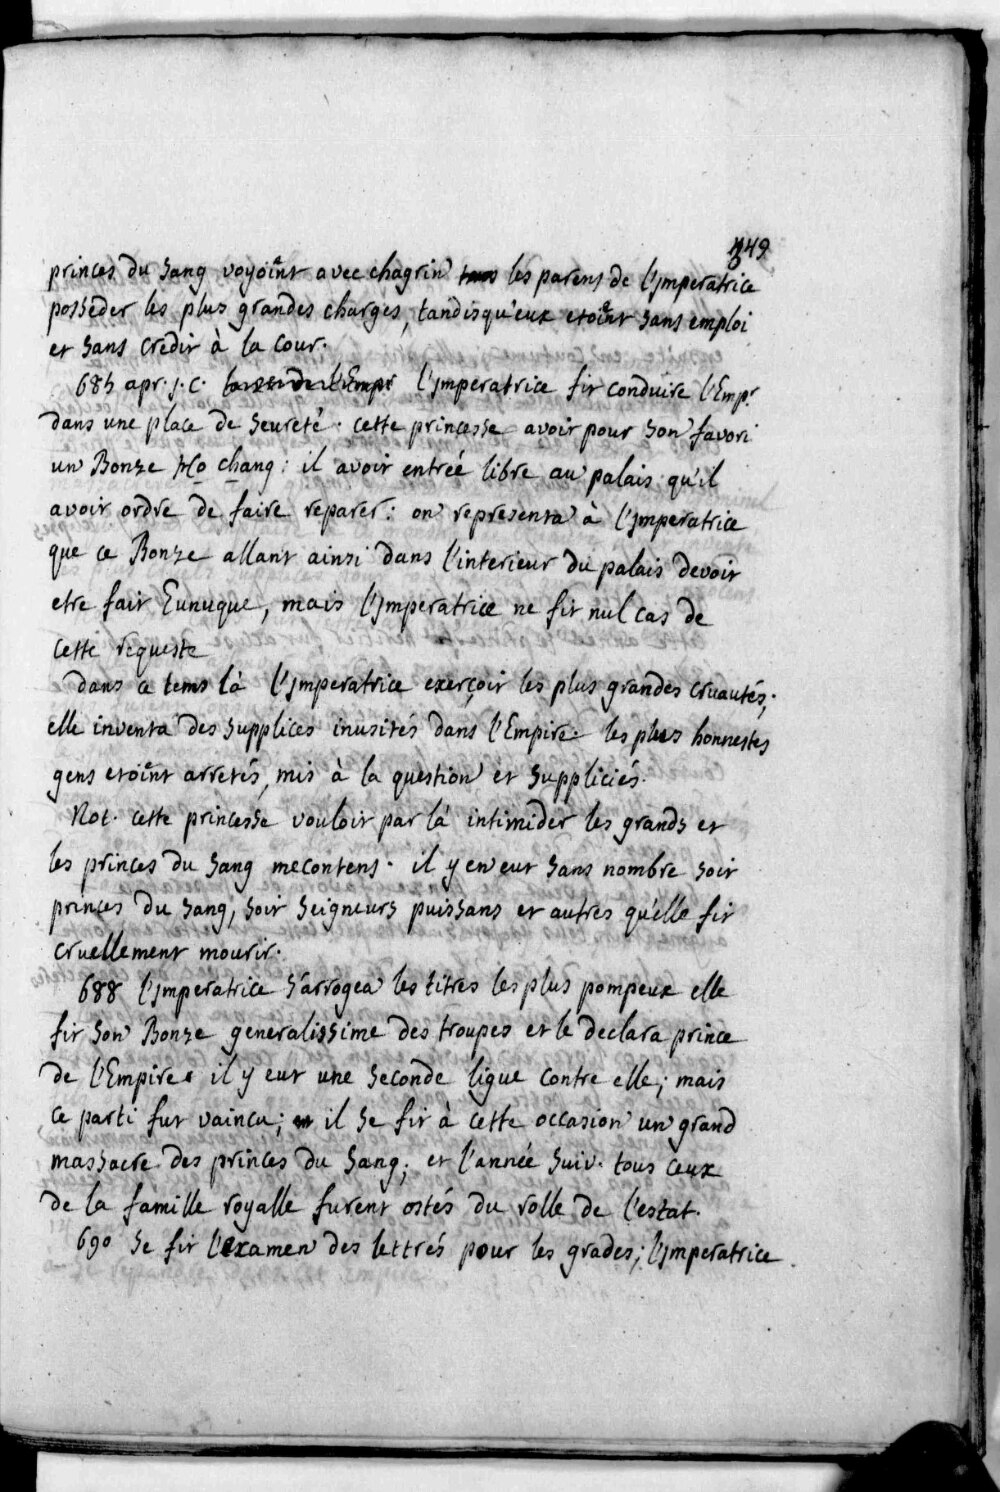 349
princes du sang voyoient avec chagrin les parens de l'jmperatrice
posseder les plus grandes charges, tandisqu'eux etoient sans emploi
et sans credit à la cour.
685 apr. j. c. l'jmperatrice fit conduire l'Empr
dans une place de seureté. cette princesse avoit pour son favori
un Bonze Ho chang: il avoit entrée libre au palais qu'il
avoit ordre de faire reparer: on representa à l'jmperatrice
que ce Bonze allant ainsi dans l'interieur du palais devoit
etre fait Eunuque, mais l'jmperatrice ne fit nul cas de
cette requeste
dans ce tems là l'jmperatrice exerçoit les plus grandes cruautés;
elle inventa des supplices inusités dans l'Empire. les plus honnestes
gens etoient arretés, mis à la question et suppliciés.
Not. cette princesse vouloit par là intimider les grands et
les princes du sang mecontens. il y en eut sans nombre soit
princes du sang, soit seigneurs puissans et autres qu'elle fit
cruellement mourir.
688 l'jmperatrice s'arrogea les titres les plus pompeux elle
fit son Bonze generalissime des troupes et le declara prince
de l'Empire. il y eut une seconde ligue contre elle; mais
ce parti fut vaincu; il se fit à cette occasion un grand
massacre des princes du sang; et l'année suiv. tous ceux
de la famille royalle furent ostés du rolle de l'estat.
690 se fit l'examen des lettrés pour les grades; l'jmperatrice